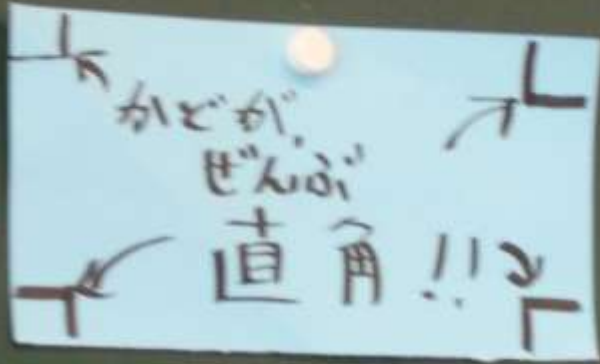 かどが、
ぜんぶ
直角!!